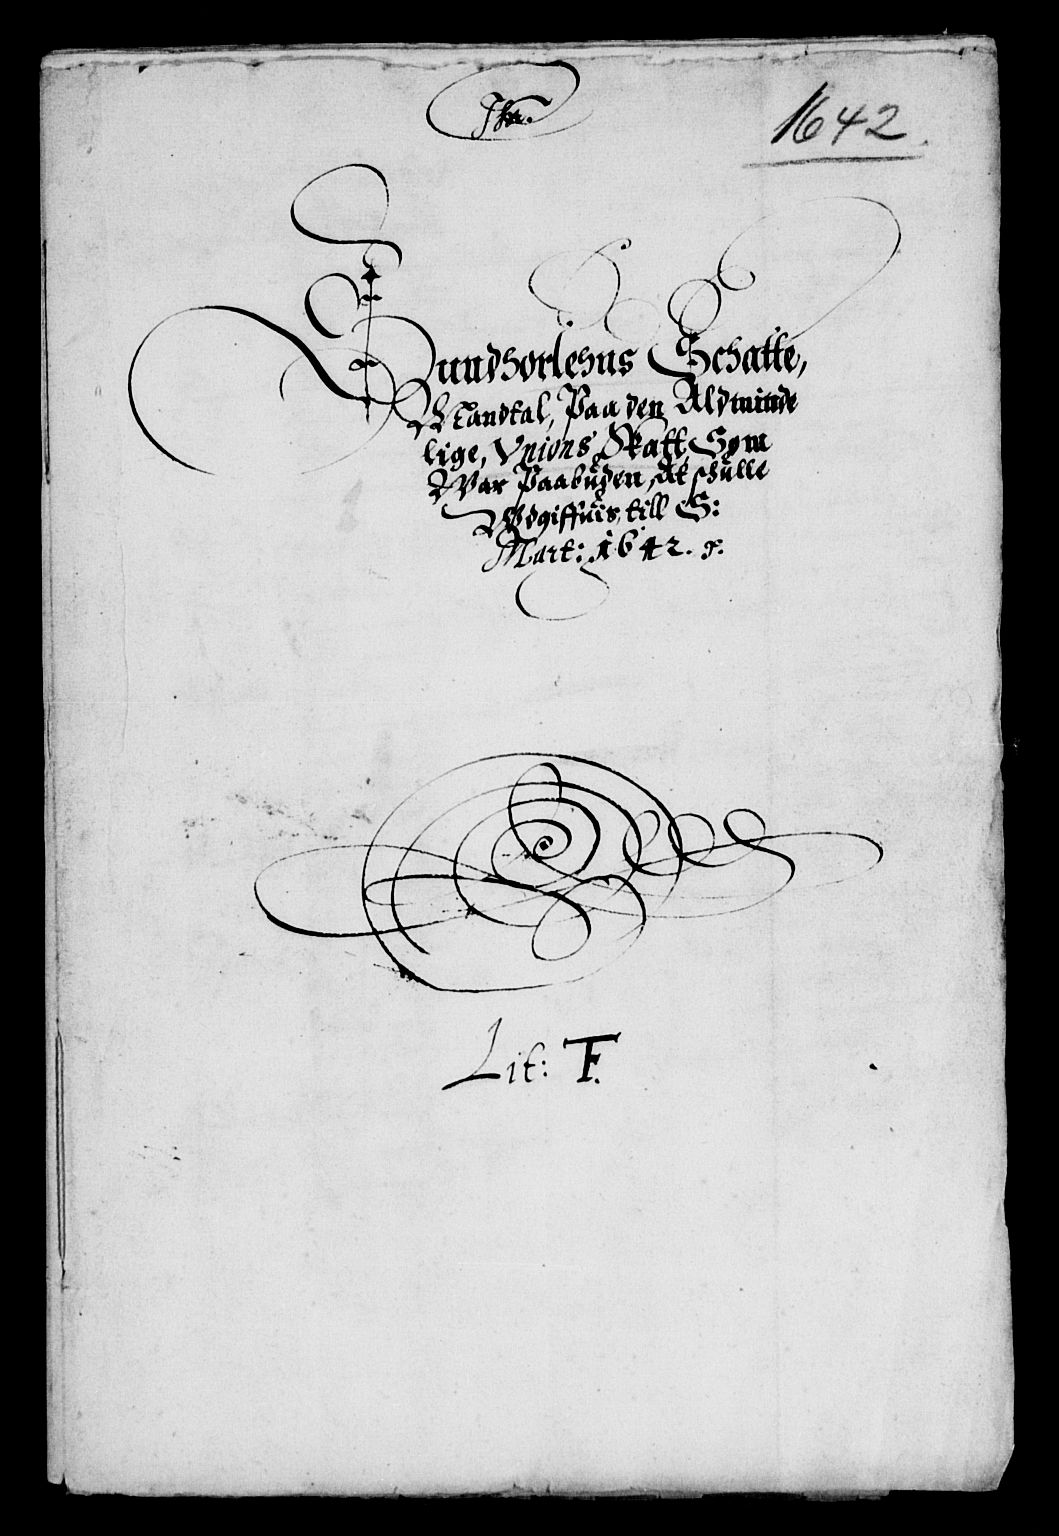 1642.
Sundhorlehns Schatte,
Mandtal, Paa den Aldminde
lige, Vnions Skatt, Søm
War Paabŭden, At schŭlle
Wdgiffŭis, till S:
Mart: 1642.
Lit: F.